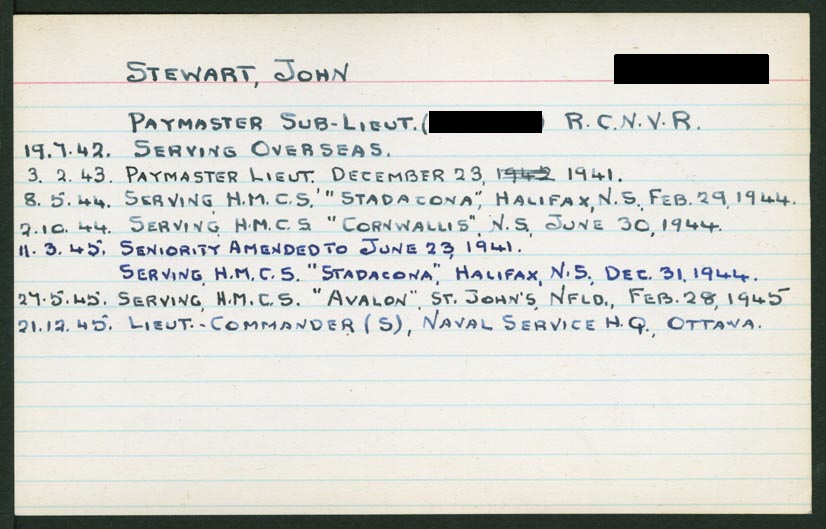 STEWART, JOHN
PAYMASTER SUB-LIEUT. ( ) R.C.N.V.R.
19.7.42. SERVING OVERSEAS.
3. 2. 43. PAYMASTER LIEUT. DECEMBER 23, 1942 1941.
8. 5. 44. SERVING H.M.C.S. "STADACONA", HALIFAX, N.S, FEB. 29, 1944.
2.10. 44. SERVING H.M.C.S "CORNWALLIS", N.S, JUNE 30, 1944.
11. 3. 45. SENIORITY AMENDED TO JUNE 23, 1941.
SERVING H.M.C.S. "STADACONA", HALIFAX, N.S, DEC. 31, 1944.
27.5.45. SERVING H.M.C.S. "AVALON", ST. JOHN'S, NFLD., FEB. 28, 1945
21.12.45. LIEUT.-COMMANDER (S), NAVAL SERVICE H.Q., OTTAWA.